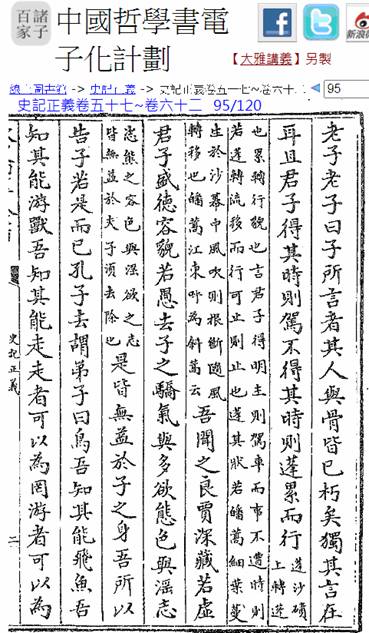 諸子
百家
中國哲學書電
子化計劃
【大雅講義】另製
-> 史記正義 -> 史記正義卷五十七~卷六十二
95
史記正義卷五十七~卷六十二 95/120
老子老子曰子所言者其人與骨皆已朽矣獨其言在
耳且君子得其時則駕不得其時則蓬累而行
蓬沙磧
上轉蓬
也累轉行貌也言君子得明主則駕車而事不遭時則
若蓬轉流移而行可止則止也蓬其狀若皤蒿細葉蔓
生於沙幕中風吹則根斷隨風
轉移也皤蒿江東呼為斜蒿云
吾聞之良賈深藏若虛
君子盛德容貌若愚去子之驕氣與多欲態色與淫志
恣態之容色與淫欲之志
皆無益於夫子須去除也
是皆無益於子之身吾所以
告子若是而已孔子去謂弟子曰鳥吾知其能飛魚吾
知其能游獸吾知其能走走者可以為罔游者可以為
史記正義
二